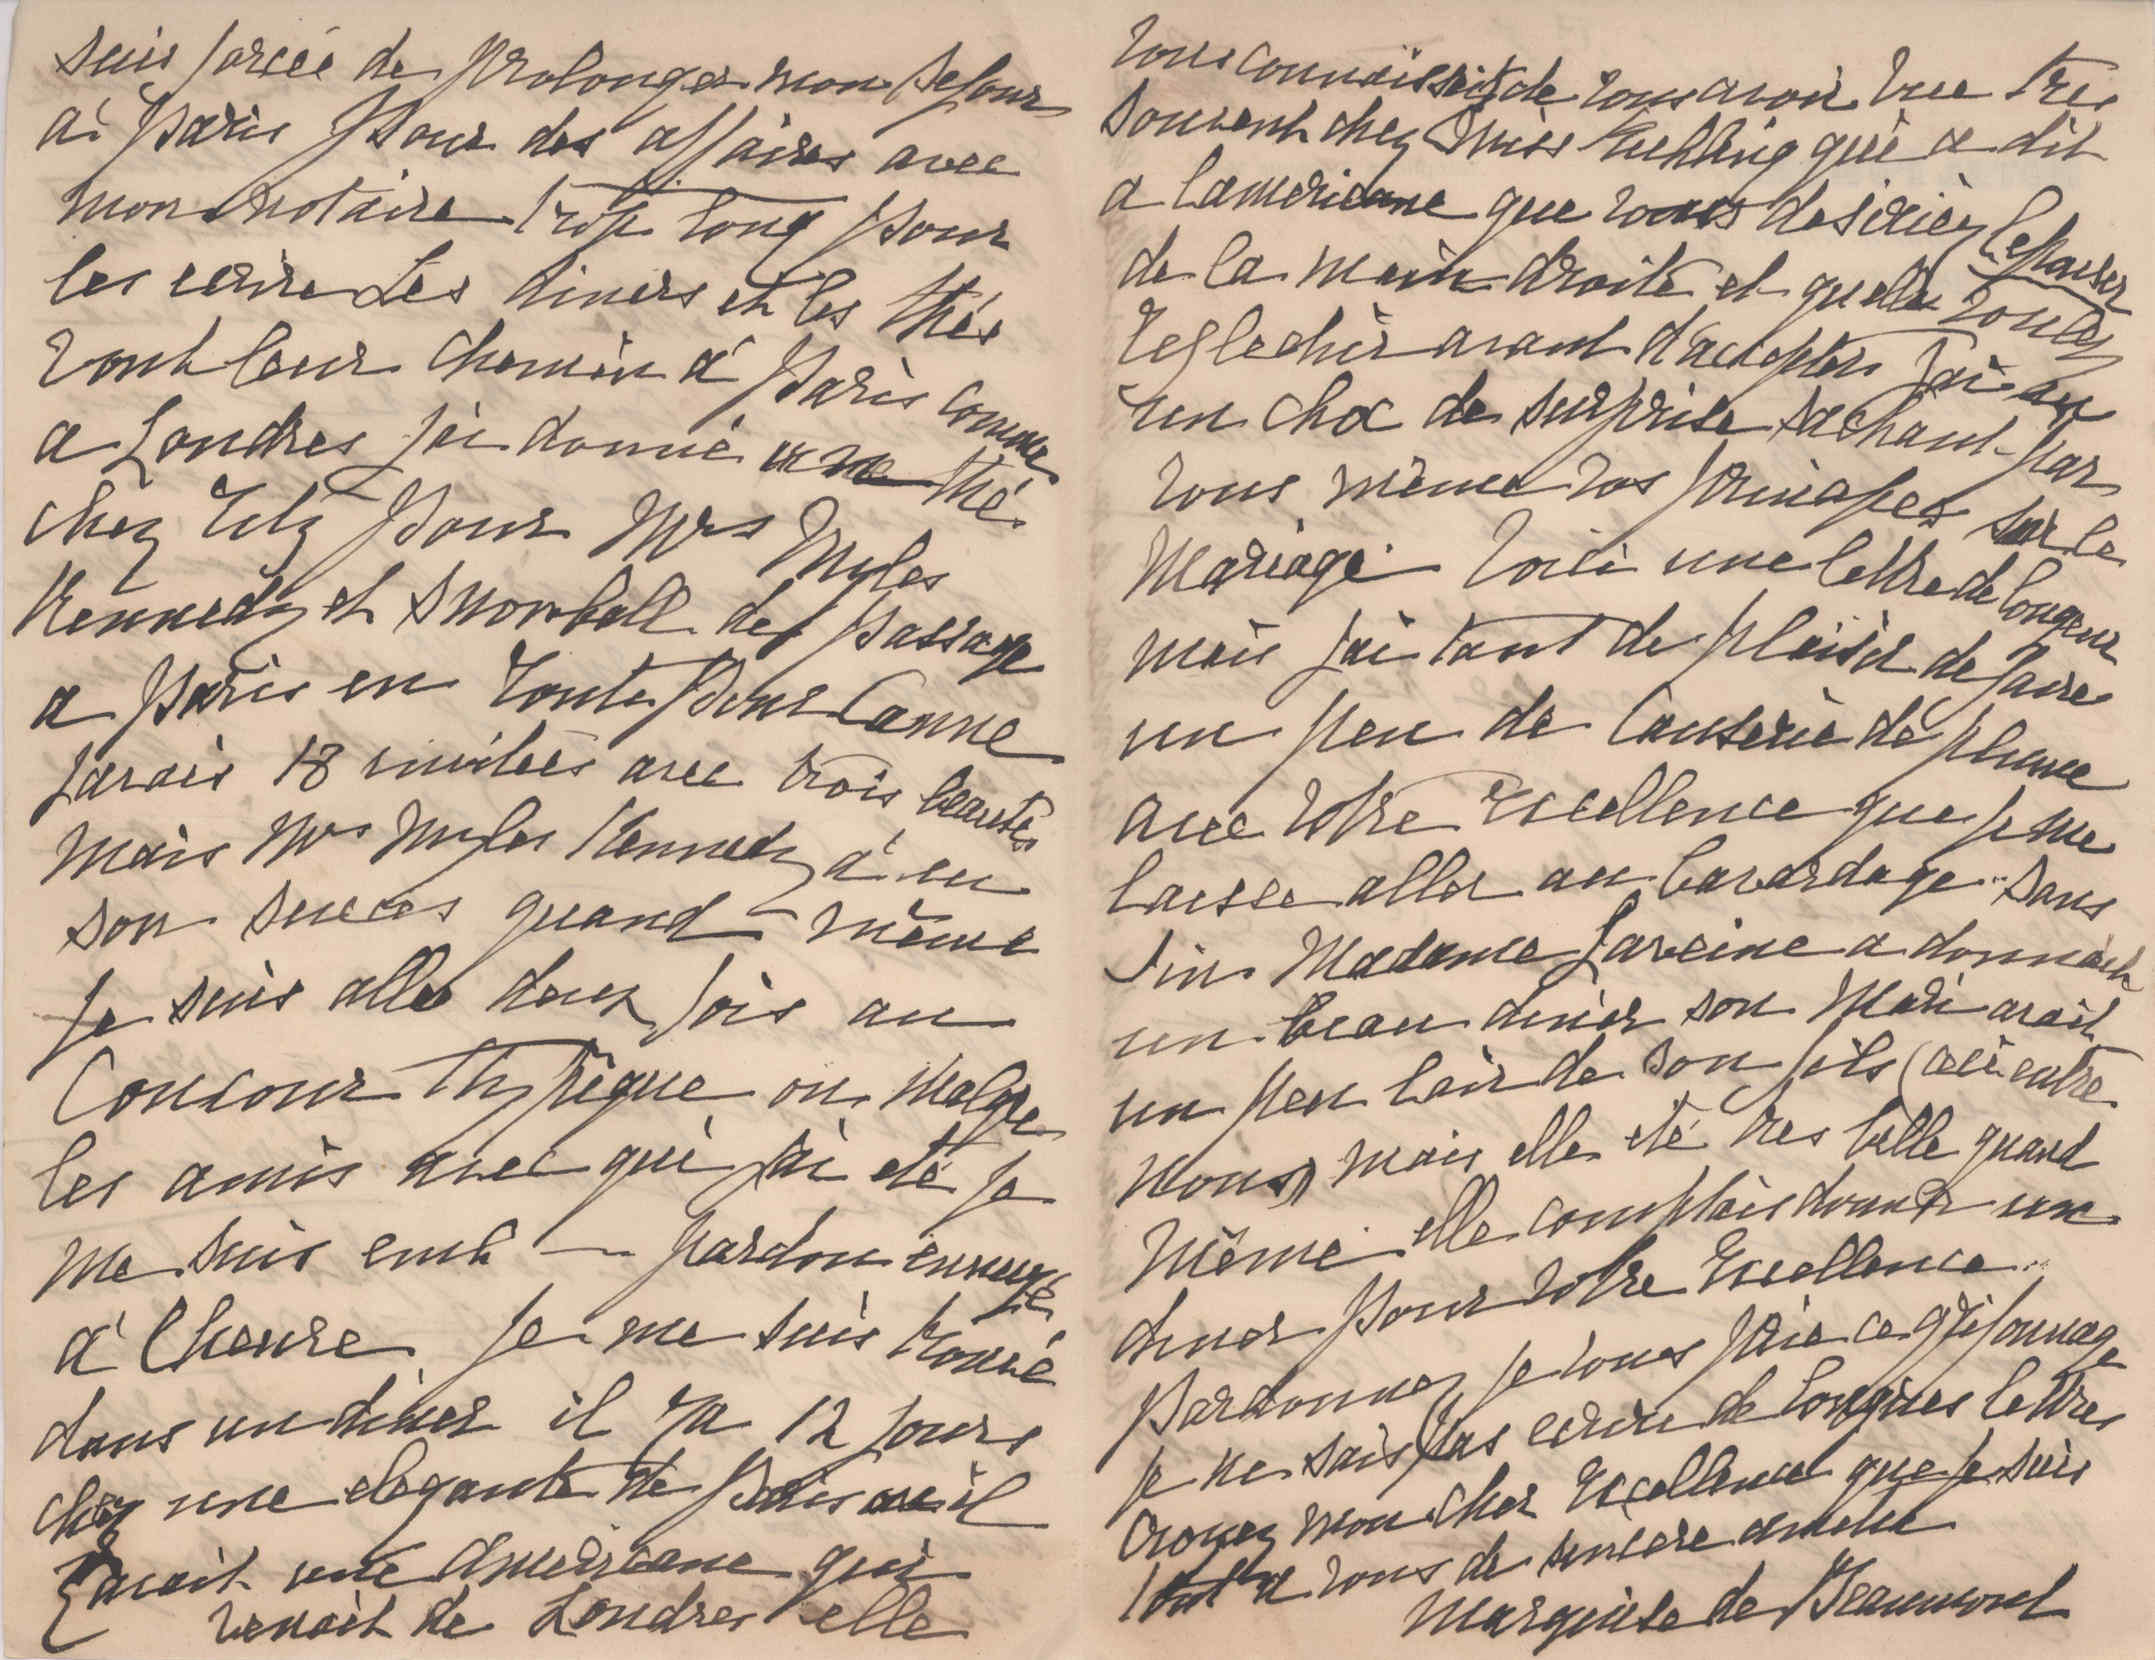 suis forcée de prolonger mon sejour
à Paris pour des affaires avec
mon notaire trop long pour
les ecrire Les diners et les thés
vont leur chemin à Paris comme
a Londres j'ai donné une thé
chez Ritz pour Mrs Myles
Kennedy et Snowball de passage
a Paris en route pour Canne
javais 18 invitees avec trois beautés
mais Mrs Myles Kennedy à eu
son succes quand même
Je suis allee deux fois au
Concour Hyppique ou malgre
les amis avec qui j'ai eté je
me suis emb — pardon ennuyé
à l'heure je me suis trouvé
dans un diner il ya 12 jours
chez une elegante de Paris
avait une americane qui
venait de Londres elle
vous connaissait de vous avoir vue tres
souvent chez Miss qui a dit
a lamericane que vous desiriez lepouser
de la main droite et quelle voulez
reflechir avant d'accepter j'ai eu
un choc de surprise sachant par
vous même vos principes sur le
mariage. Voici une lettre de longeur
mais j'ai tant de plaisir de faire
un peu de causerie de plume
avec votre Excellence que je me
laisse aller au bavardage sans
fin. Madame a donné
un beau diner son mari avait
un peu lair de son fils (ceci entre
nous) mais elle eté tres belle quand
même elle comptais donner un
diner pour votre Excellence
pardonnez je vous prie ce grifonnage
je ne sais pas ecrire de longues lettres
croyez mon cher Excellence que je suis
tout a vous de sincere amitié
Marquise de Beaumont